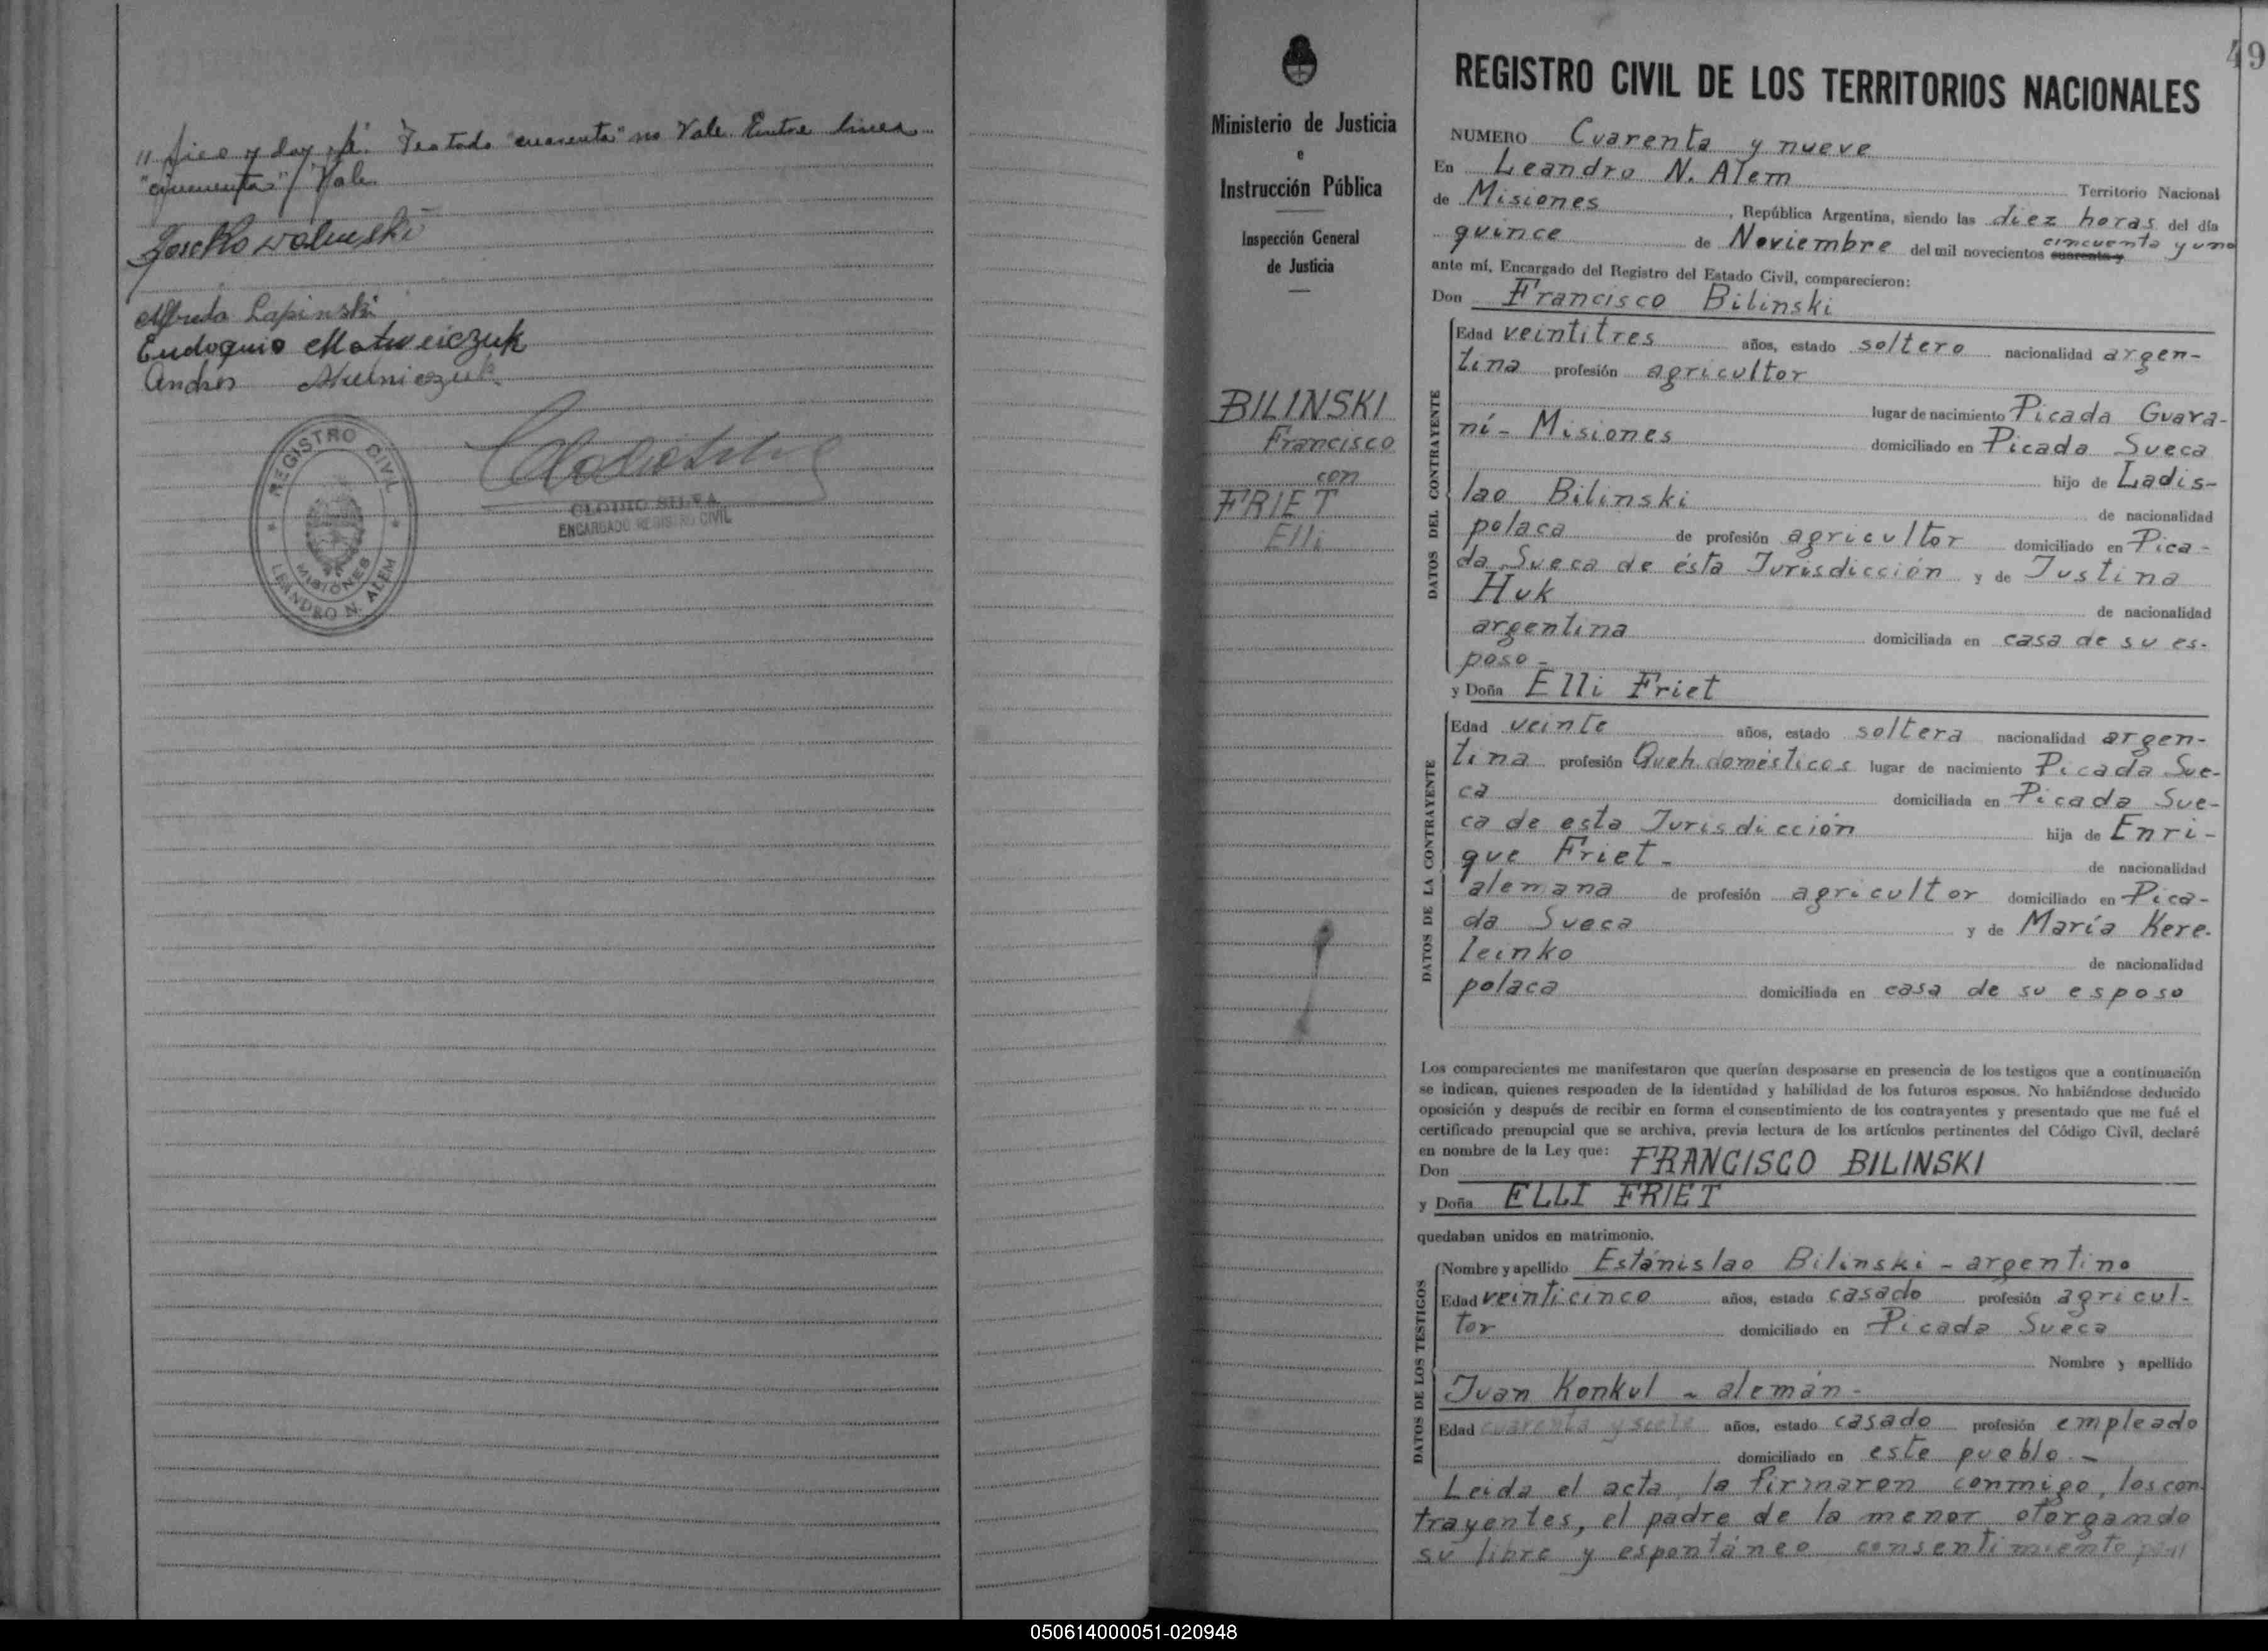 fico y doy fé. Testado "cuarenta" no Vale. Entre línea
"cincuenta"/Vale
Alfredo Lapinski
Eudoquio Matweiczuk
Andrés
REGISTRO CIVIL
MISIONES
LEANDRO N. ALEM
CLODIO SILVA
ENCARGADO REGISTRO CIVIL
49
Ministerio de Justicia
e
Instrucción Pública
Inspección General
de Justicia
BILINSKI
Francisco
con
FRIET
Elli
REGISTRO CIVIL DE LOS TERRITORIOS NACIONALES
NUMERO Cuarenta y nueve
En Leandro N. Alem Territorio Nacional
de Misiones, República Argentina, siendo las diez horas del día
quince de Noviembre del mil novecientos cuarenta y cincuenta y uno
ante mí, Encargado del Registro del Estado Civil, comparecieron:
Don Francisco Bilinski
DATOS DEL CONTRAYENTE
Edad veintitres años, estado soltero nacionalidad argen-
tina profesión agricultor
lugar de nacimiento Picada Guara-
ní - Misiones domiciliado en Picada Sueca
hijo de Ladis-
lao Bilinski de nacionalidad
polaca de profesión agricultor domiciliado en Pica-
da Sueca de ésta Jurisdicción y de Justina
Huk de nacionalidad
argentina domiciliada en casa de su es-
poso -
y Doña Elli Friet
DATOS DE LA CONTRAYENTE
Edad veinte años, estado soltera nacionalidad argen-
tina profesión Queh. domésticos lugar de nacimiento Picada Sue-
ca domiciliada en Picada Sue-
ca de esta Jurisdicción hija de Enri-
que Friet - de nacionalidad
alemana de profesión agricultor domiciliado en Pica-
da Sueca y de María Kere-
leinko de nacionalidad
polaca domiciliada en casa de su esposo
Los comparecientes me manifestaron que querían desposarse en presencia de los testigos que a continuación
se indican, quienes responden de la identidad y habilidad de los futuros esposos. No habiéndose deducido
oposición y después de recibir en forma el consentimiento de los contrayentes y presentado que me fué el
certificado prenupcial que se archiva, previa lectura de los artículos pertinentes del Código Civil, declaré
en nombre de la Ley que:
Don FRANCISCO BILINSKI
y Doña ELLI FRIET
quedaban unidos en matrimonio.
DATOS DE LOS TESTIGOS
Nombre y apellido Estánislao Bilinski - argentino
Edad veinticinco años, estado casado profesión agricul-
tor domiciliado en Picada Sueca
Nombre y apellido
Juan Konkul - alemán -
Edad cuarenta y siete años, estado casado profesión empleado
domiciliado en este pueblo. -
Leida el acta, la firmaron conmigo, los con-
trayentes, el padre de la menor otorgando
su libre y espontáneo consentimiento para
050614000051-020948